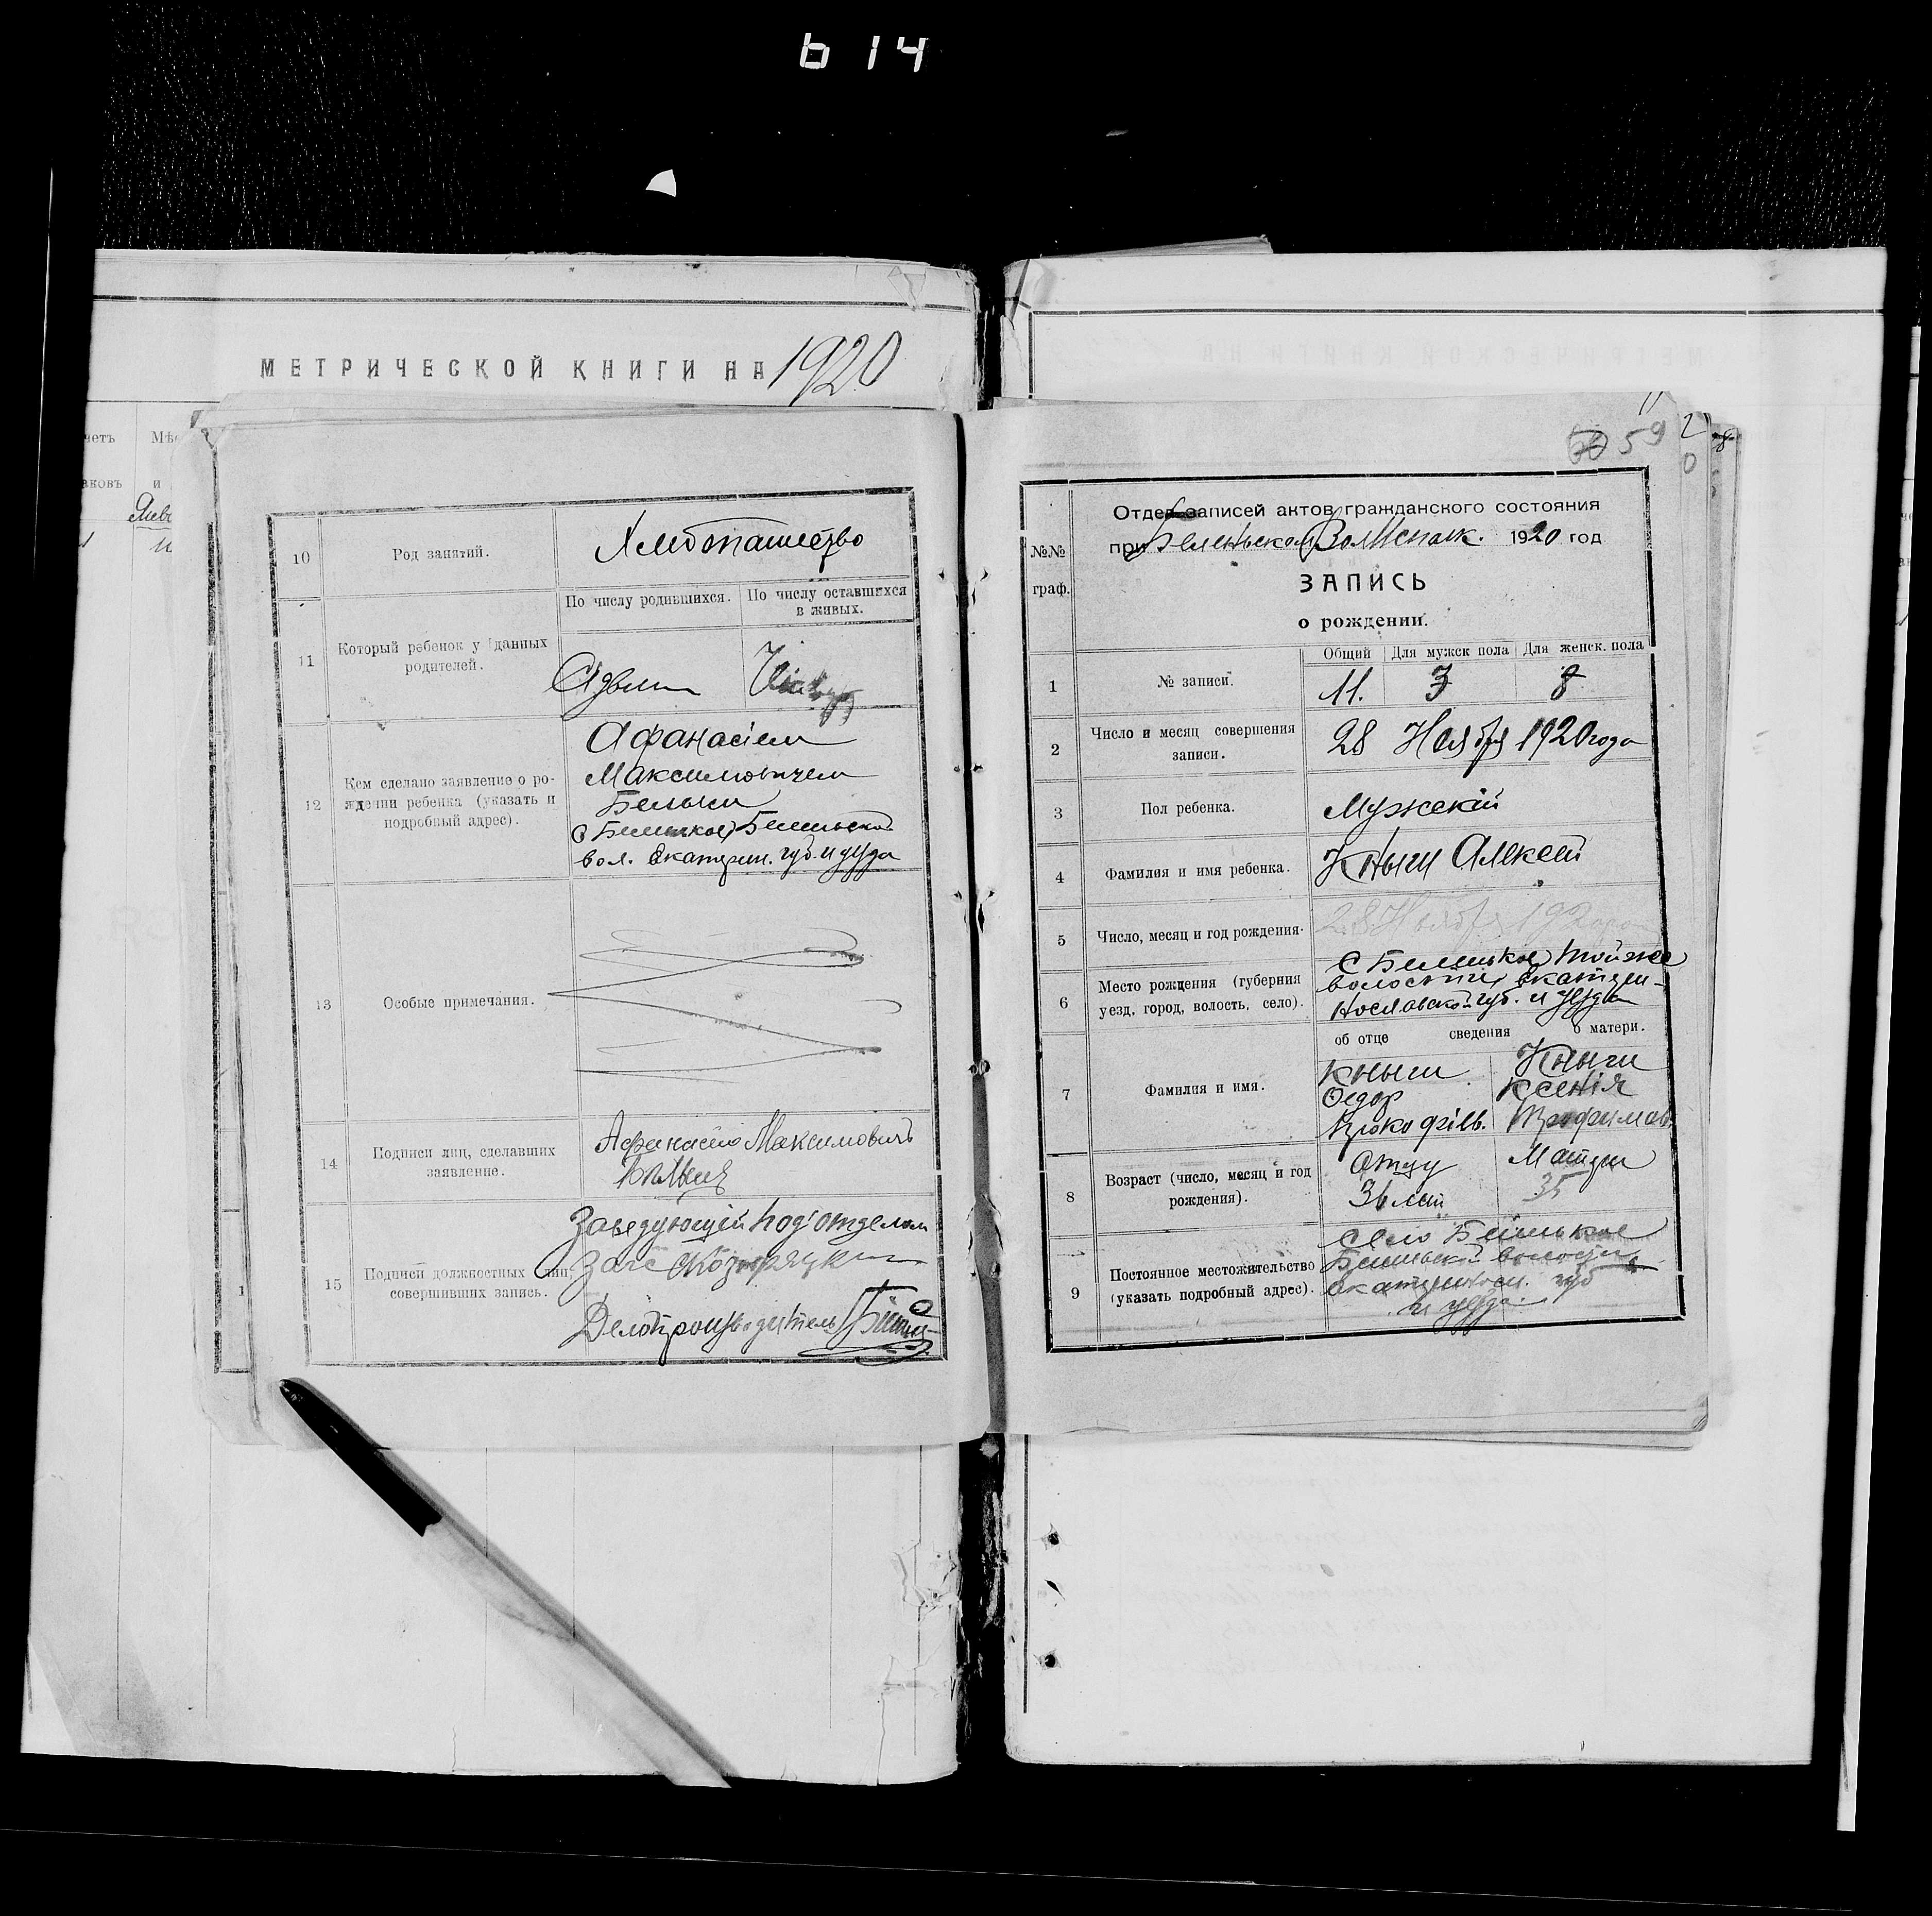 614
МЕТРИЧЕСКОЙ КНИГИ НА 1920
четъ
аковъ
10
Род занятий.
Хлебопашество
11
Который ребенок у данных
родителей.
По числу родившихся.
По числу оставшихся
в живых.
12
Кем сделано заявление о ро-
ждении ребенка (указать и
подробный адрес).
Афанасіем
Максимовичем
Белым
вол. Екатерин. губ. и уезда
13
Особые примечания.
14
Подписи лиц, сделавших
заявление.
Афанасію Максимовичъ
15
Подписи должностных лиц,
совершивших запись.
Заведующій подотделом
Загс
Делопроизводитель
60 59
№№
граф.
Отдел записей актов гражданского состояния
при Беленьском ВолИсполк. 1920 год
ЗАПИСЬ
о рождении.
1
№ записи.
Общий
Для мужск пола
Для женск. пола
11.
3
8
2
Число и месяц совершения
записи.
28 Ноября 1920 года
3
Пол ребенка.
Мужскій
4
Фамилия и имя ребенка.
Кныш Алексей
5
Число, месяц и год рождения.
28 Ноября 192
6
Место рождения (губерния
уезд, город, волость, село).
С Беленькое той же
волости, Екатери-
нославской губ. и Уезда
об отце
сведения
о матери.
7
Фамилия и имя.
Кныш
Федор
Прокофіев.
Кныш
Ксенія
Трофимов.
8
Возраст (число, месяц и год
рождения).
Отцу
36 лет
Матери
35
9
Постоянное местожительство
(указать подробный адрес).
Село Беленькое
Беленьской волости
Екатериносл. губ
и уезда.